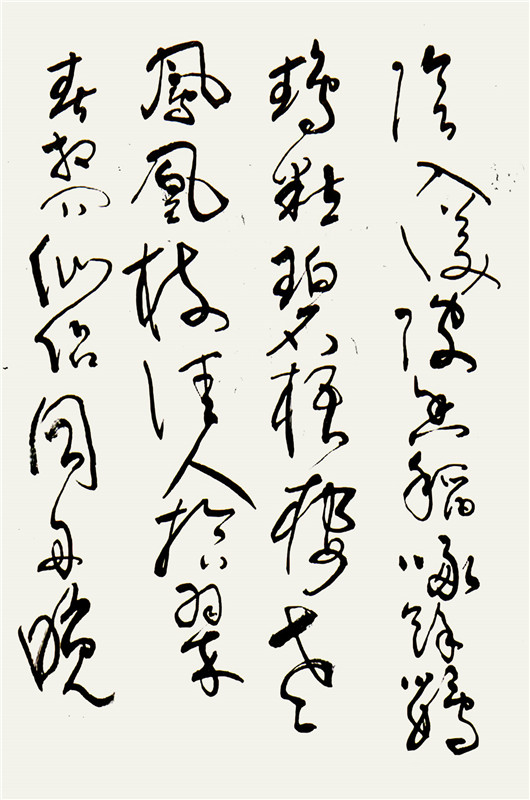 陰入渼陂香稻啄餘鸚
鵡粒碧梧棲老
鳳凰枝佳人拾翠
春相問仙侶同舟晚